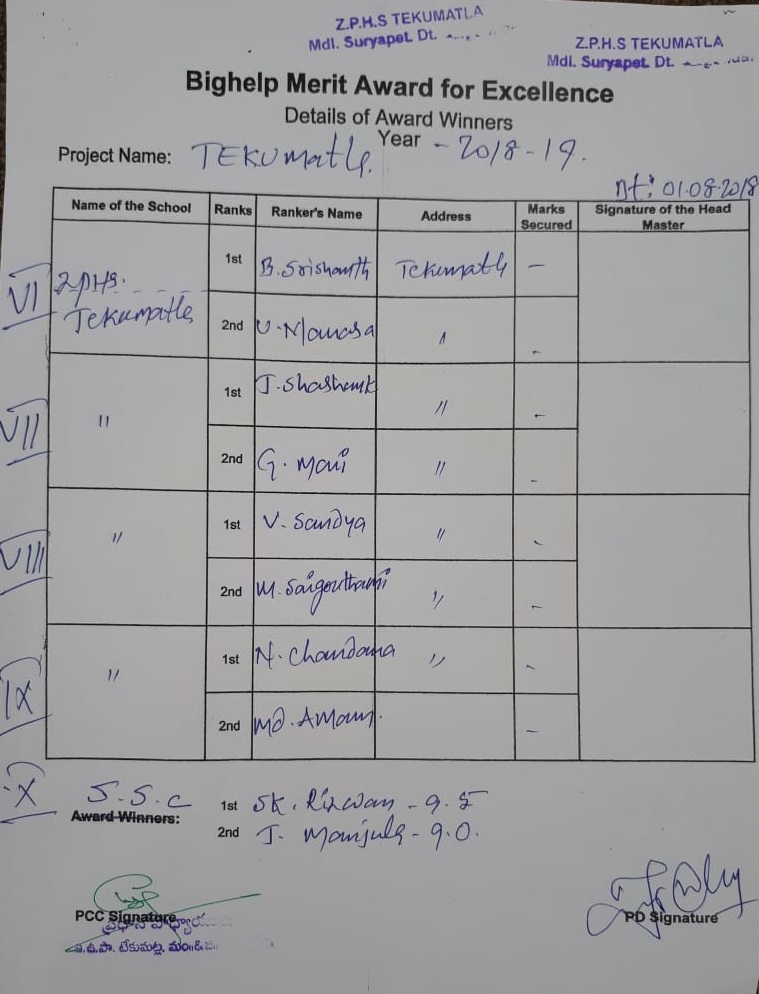 Z.P.H.S TEKUMATLA
Mdl. Suryapet. Dt.
Z.P.H.S TEKUMATLA
Mdl. Suryapet. Dt.
Bighelp Merit Award for Excellence
Details of Award Winners
Project Name: TEKUMatla. Year - 2018-19.
Dt: 01.08.2018
Name of the School Ranks Ranker's Name Address Marks Secured Signature of the Head Master
VI ZPHS. Tekumatla 1st B. Srishanth Tekumatla –
2nd V. Manasa " -
VII " 1st J. Shashank " -
2nd G. Mani " -
VIII " 1st V. Sandya " -
2nd M. Saigouthami " -
IX " 1st N. Chandana " -
2nd MD. AMaan. –
X S.S.C 1st SK. Rizwan - 9.5
Award Winners: 2nd J. Manjula - 9.0.
PCC Signature
PD Signature
ప్రధానోపాధ్యాయ
జి.ఉ.పా. టేకుమట్ల, మం॥